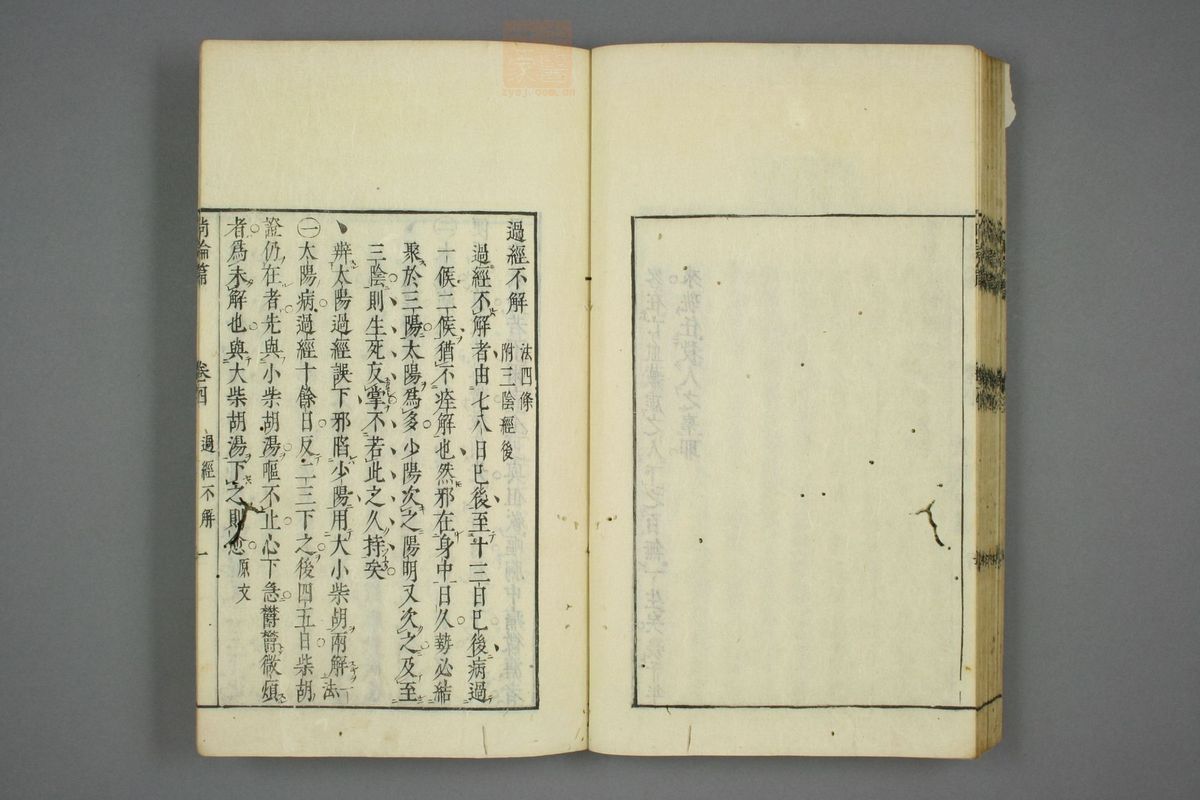 過經不解
法四條
附三陰經後
過經不解者由七八日已後至十三日已後病過
一候二候猶不痊解也然邪在身中日久勢必結
聚於三陽太陽爲多少陽次之陽明又次之及至
三陰則生死反掌不若此之久持矣
辨太陽過經誤下邪陷少陽用大小柴胡兩解一法
㊀太陽病過經十餘日反二三下之後四五日柴胡
證仍在者先與小柴胡湯嘔不止心下急鬱鬱微煩
者爲未解也與大柴胡湯下之則愈原文
尚論篇 卷四 過經不解 一
zygj.com.cn